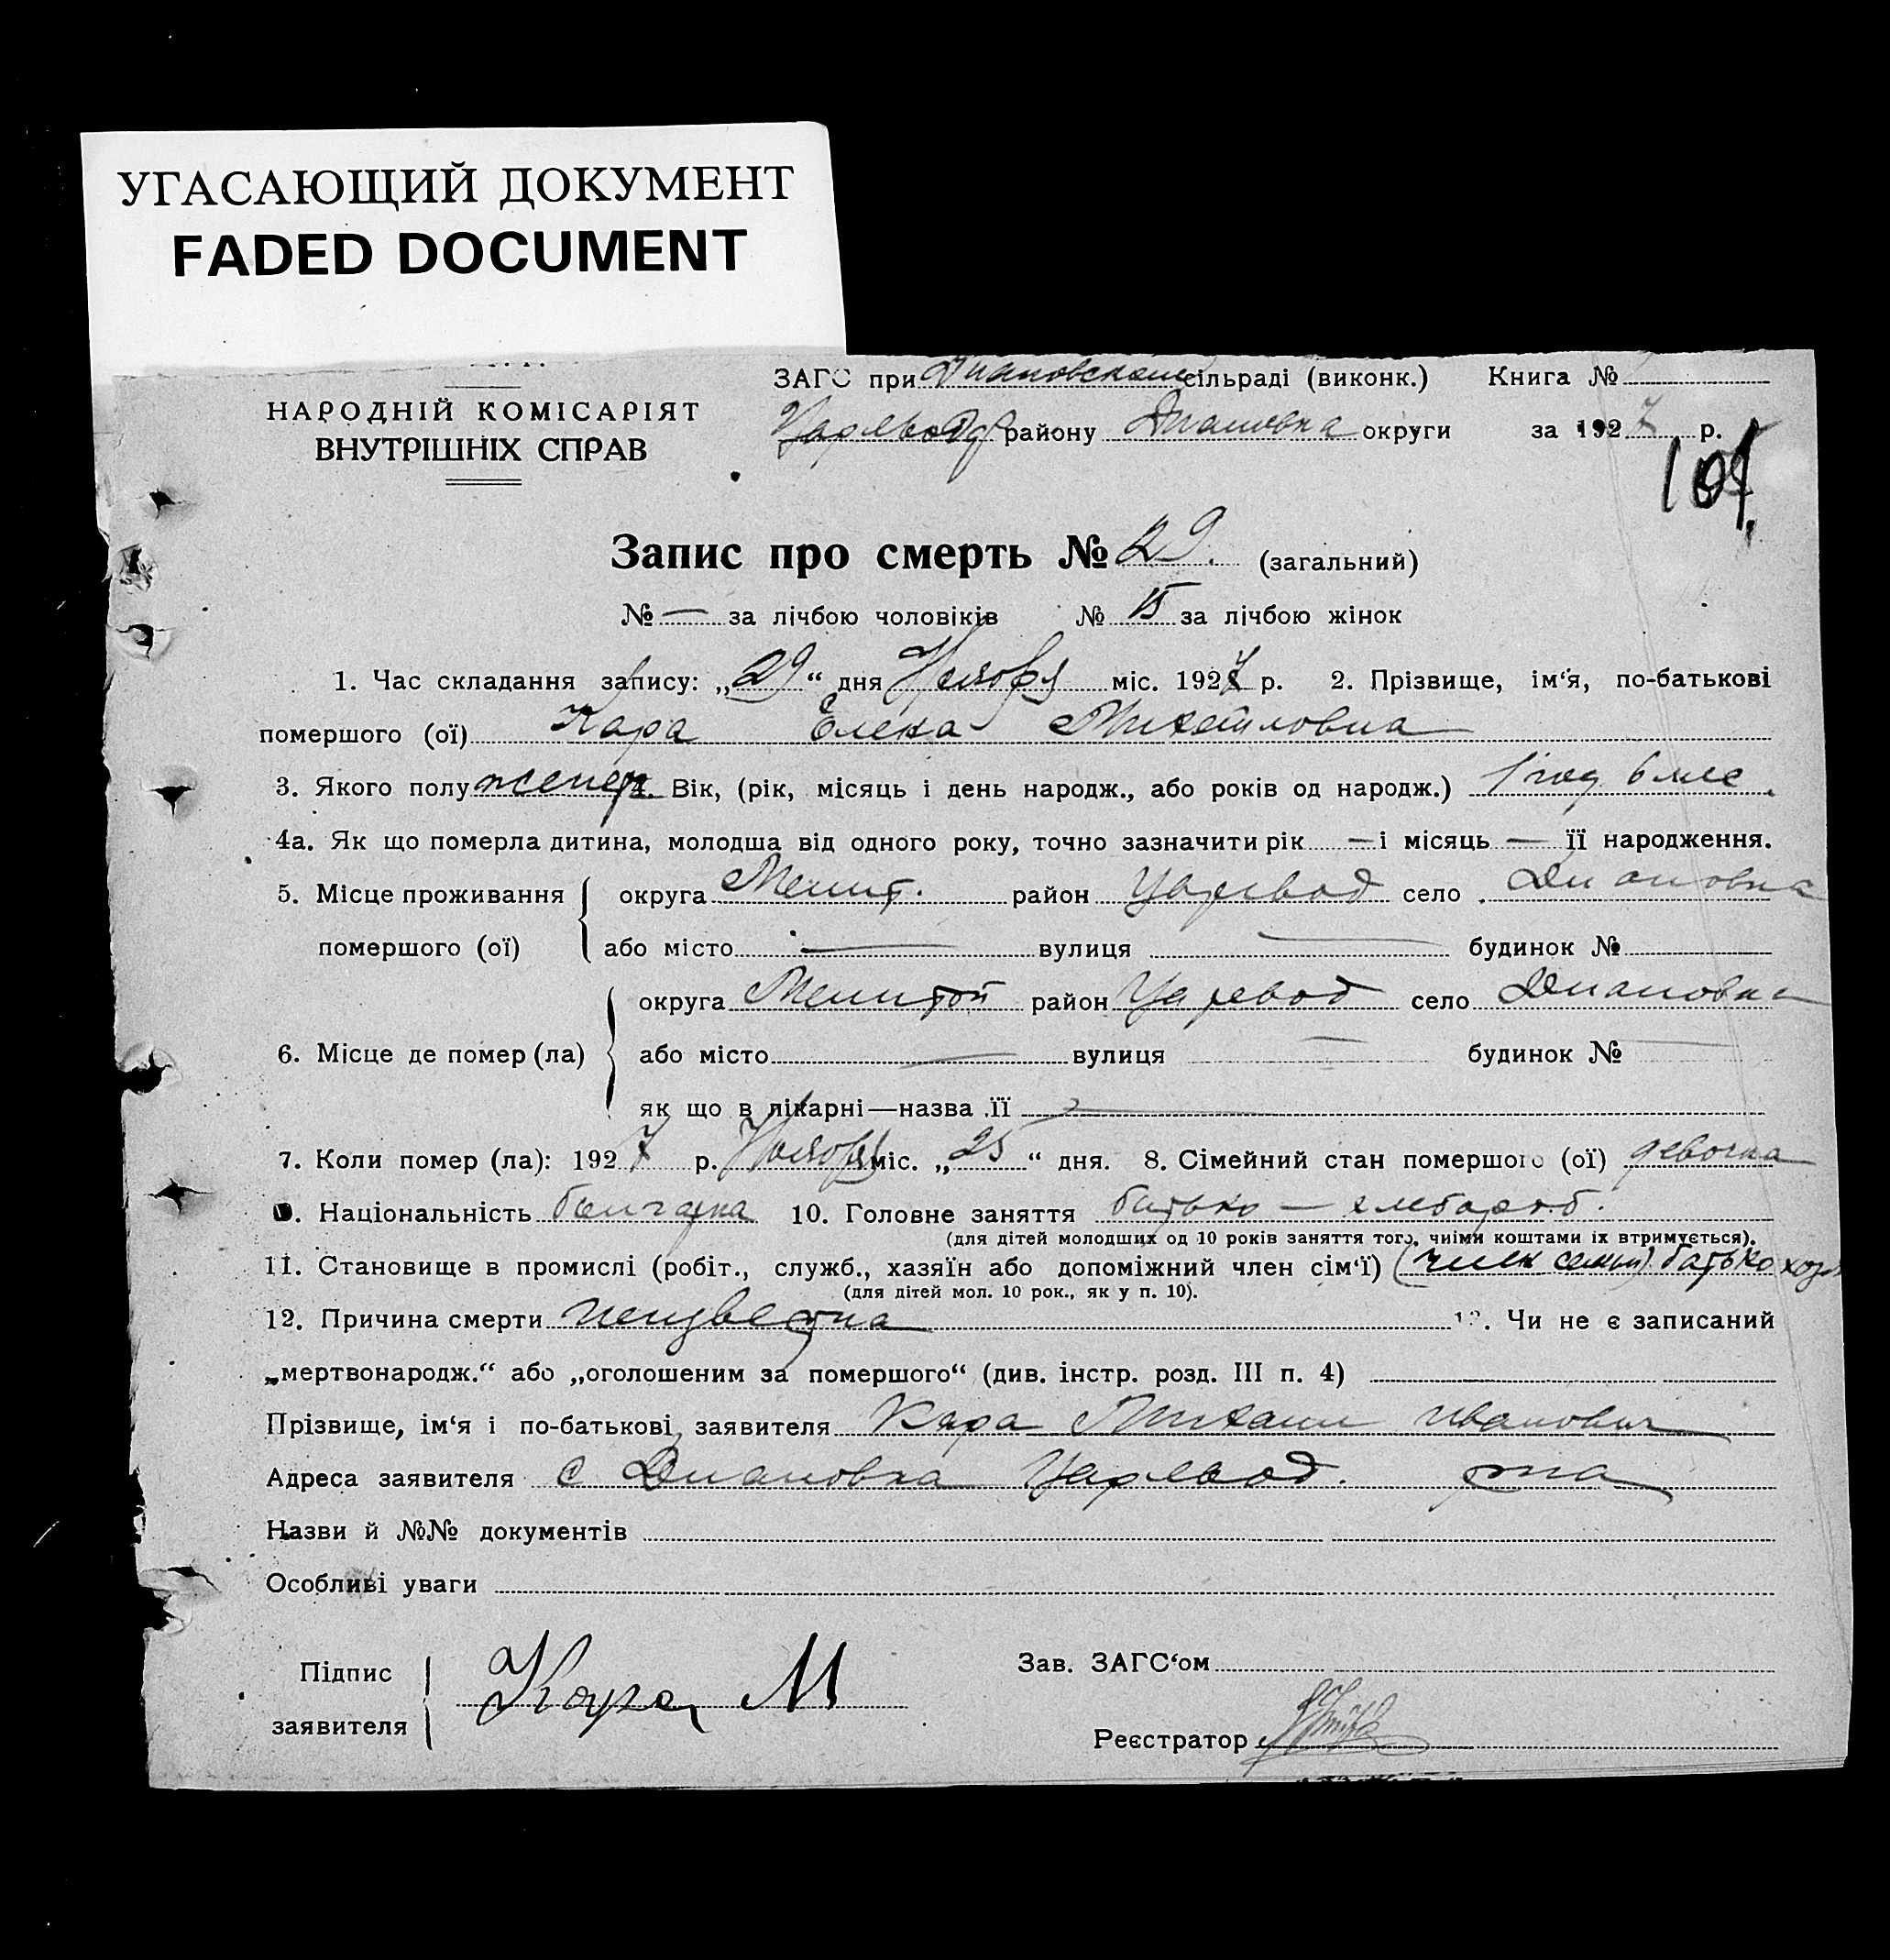 УГАСАЮЩИЙ ДОКУМЕНТ
FADED DOCUMENT
ЗАГС при Диановском сільраді (виконк.) Книга №
НАРОДНІЙ КОМІСАРІЯТ
ВНУТРІШНІХ СПРАВ
району Диановка округи за 1927 р.
Запис про смерть № 29. (загальний)
№ — за лічбою чоловіків № 15 за лічбою жінок
1. Час складання запису: „29“ дня Ноября міс. 1927 р. 2. Прізвище, ім‘я, по-батькові
помершого (ої) Кара Елена Михайловна
3. Якого полу женск. Вік, (рік, місяць і день народж., або років од народж.) 1 год 6 мес.
4а. Як що померла дитина, молодша від одного року, точно зазначити рік — і місяць — її народження.
5. Місце проживання округа Мелит. район Царевод село Диановка
помершого (ої) або місто — вулиця — будинок №
округа Мелитоп район Царевод село Диановка
6. Місце де помер (ла) або місто — вулиця — будинок №
як що в лікарні—назва її —
7. Коли помер (ла): 1927 р. Ноября міс. „25“ дня. 8. Сімейний стан помершого (ої) девочка
9. Національність болгарка 10. Головне заняття батько — хлебороб.
(для дітей молодших од 10 років заняття того, чиїми коштами їх втримується).
11. Становище в промислі (робіт., служб., хазяїн або допоміжний член сім‘ї) (член семьи) батько хозя
(для дітей мол. 10 рок., як у п. 10).
12. Причина смерти неизвестна 13. Чи не є записаний
„мертвонародж.“ або „оголошеним за помершого“ (див. інстр. розд. III п. 4)
Прізвище, ім‘я і по-батькові заявителя Кара Михаил Иванович
Адреса заявителя с Диановка Царевод. р-на
Назви й №№ документів
Особливі уваги
Підпис
заявителя
Кара М
Зав. ЗАГС‘ом
Реєстратор